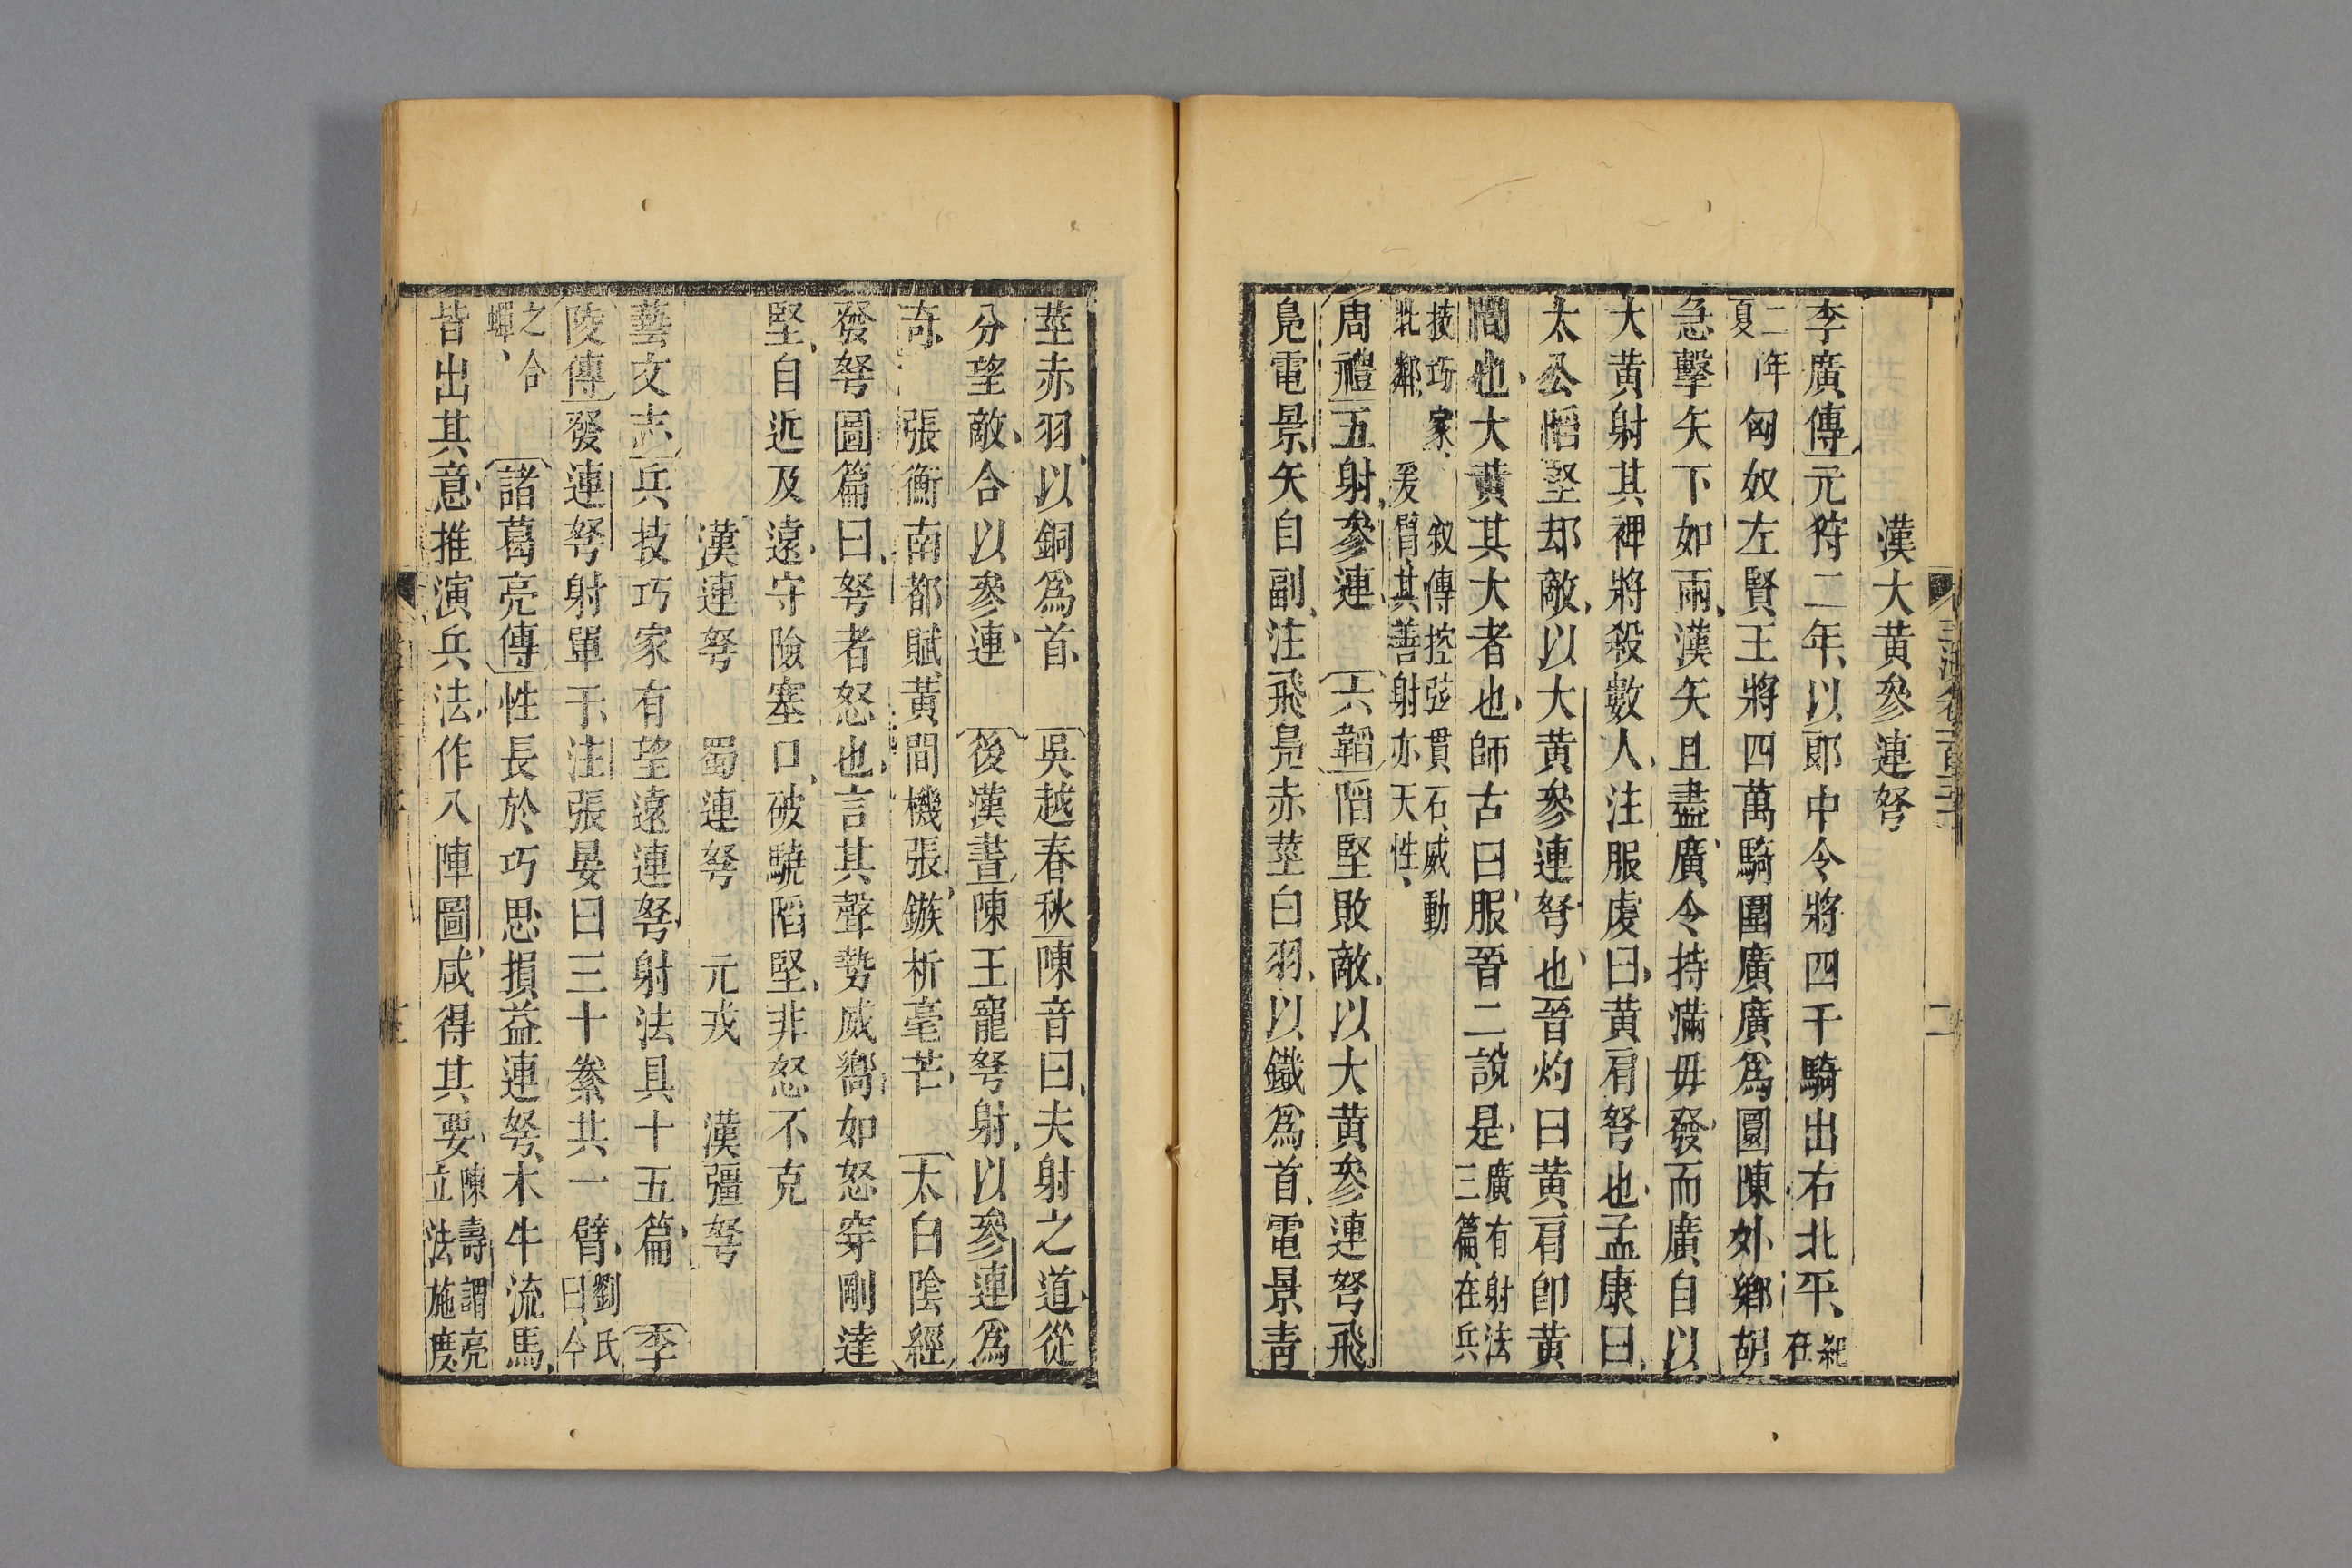 漢大黄參連弩
李廣傳元狩二年以郎中令將四千騎出右北平紀在
二年夏匈奴左賢王將四萬騎圍廣廣爲圜陳外鄉胡
急擊矢下如雨漢矢且盡廣令持滿毋發而廣自以
大黄射其裨將殺數人注服虔曰黄肩弩也孟康曰
太公陷堅却敵以大黄參連弩也晉灼曰黄肩卽黄
間也大黄其大者也師古曰服晉二說是廣有射法三篇在兵
技巧家叙傳控弦貫石威動北鄰爰臂其善射亦天性
周禮五射參連 六韜陷堅敗敵以大黄參連弩飛
鳧電景矢自副注飛鳧赤莖白羽以鐵爲首電景靑
莖赤羽以銅爲首 吳越春秋陳音曰夫射之道從
分望敵合以參連 後漢書陳王寵弩射以參連爲
奇 張衡南都賦黃間機張鏃析毫芒 太白陰經
發弩圖篇曰弩者怒也言其聲勢威嚮如怒穿剛達
堅自近及遠守險塞口破驍陷堅非怒不克
漢連弩 蜀連弩 元戎 漢彊弩
藝文志兵技巧家有望遠連弩射法具十五篇 李
陵傳發連弩射單于注張晏曰三十絭共一臂劉氏曰今
之合蟬 諸葛亮傳性長於巧思損益連弩木牛流馬
皆出其意推演兵法作八陣圖咸得其要陳壽謂亮立法施度